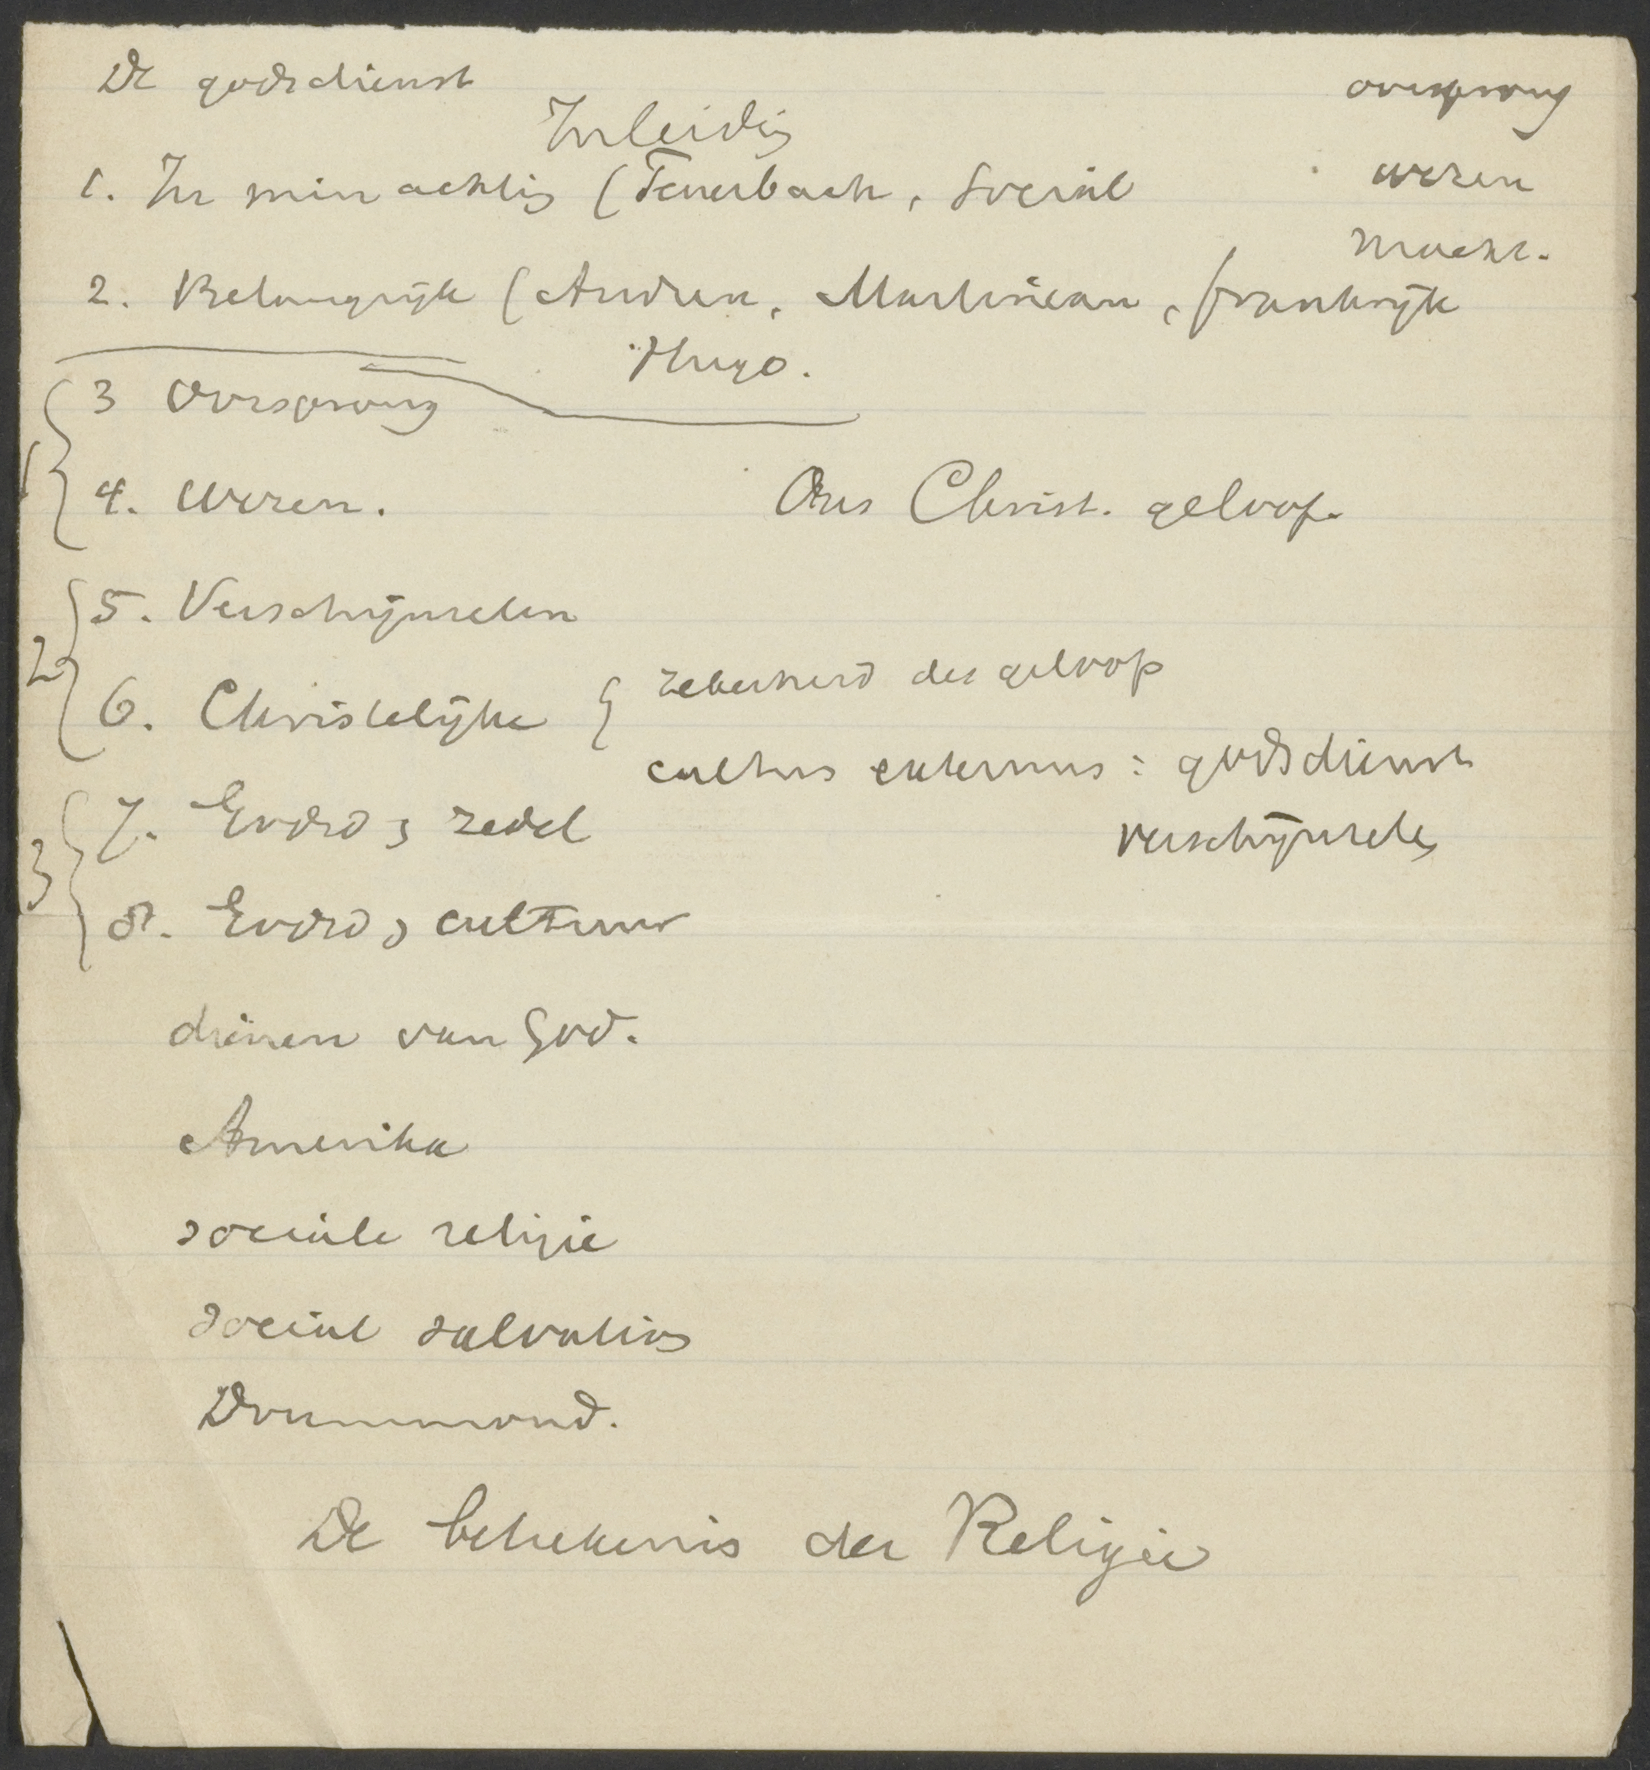 De godsdienst
oorsprong
Inleidig
wezen
1. In minachtig (Feuerbach, Social
macht.
2. Belangrijk (Andren, Martineau, frankrijk
Hugo.
3 Oorsprong
1
4. Wezen.
Ons Christ. geloof.
5. Verschijnselen
2
6. Christelijke { zekerheid des geloofs
cultus externus : godsdienst
verschijnselen
7. Godsd, zedel
3
8. Godsd, cultuur
dienen van God.
Amerika
sociale religie
social salvation
Drummond.
De beteekenis der Religie